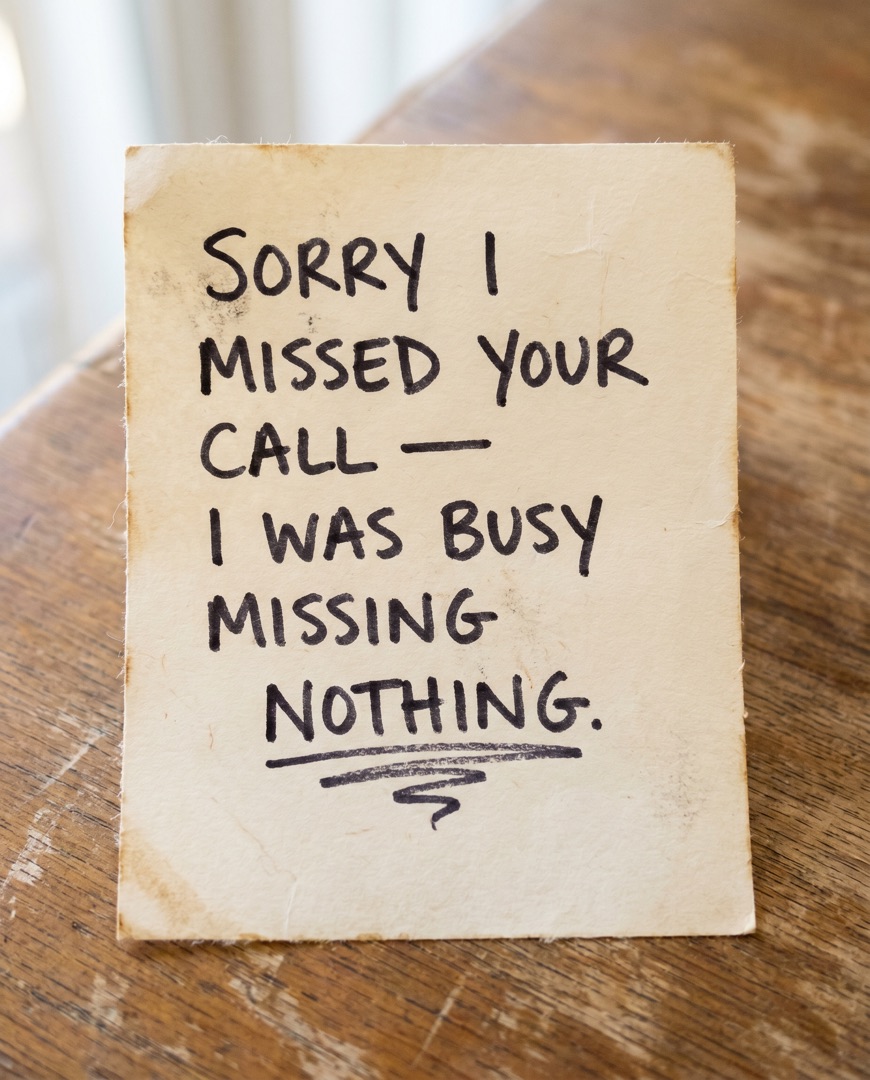 SORRY I
MISSED YOUR
CALL —
I WAS BUSY
MISSING
NOTHING.